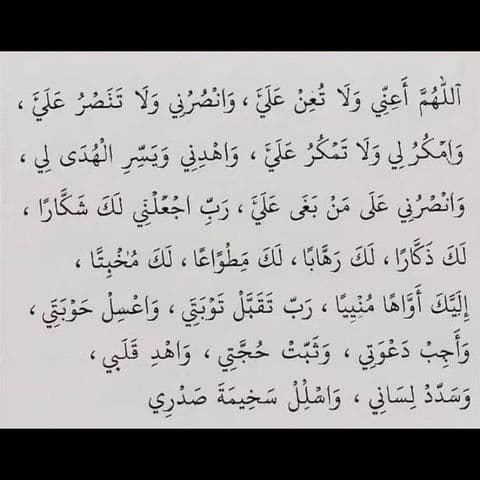 اَللّٰهُمَّ أَعِنِّي وَلَا تُعِنْ عَلَيَّ ، وَانْصُرْنِي وَلَا تَنْصُرْ عَلَيَّ ،
وَامْكُرْ لِي وَلَا تَمْكُرْ عَلَيَّ ، وَاهْدِنِي وَيَسِّرِ الْهُدَى لِي ،
وَانْصُرْنِي عَلَى مَنْ بَغَى عَلَيَّ ، رَبِّ اجْعَلْنِي لَكَ شَكَّارًا ،
لَكَ ذَكَّارًا ، لَكَ رَهَّابًا ، لَكَ مِطْوَاعًا ، لَكَ مُخْبِتًا ،
إِلَيْكَ أَوَّاهًا مُنِيبًا ، رَبِّ تَقَبَّلْ تَوْبَتِي ، وَاغْسِلْ حَوْبَتِي ،
وَأَجِبْ دَعْوَتِي ، وَثَبِّتْ حُجَّتِي ، وَاهْدِ قَلْبِي ،
وَسَدِّدْ لِسَانِي ، وَاسْلُلْ سَخِيمَةَ صَدْرِي